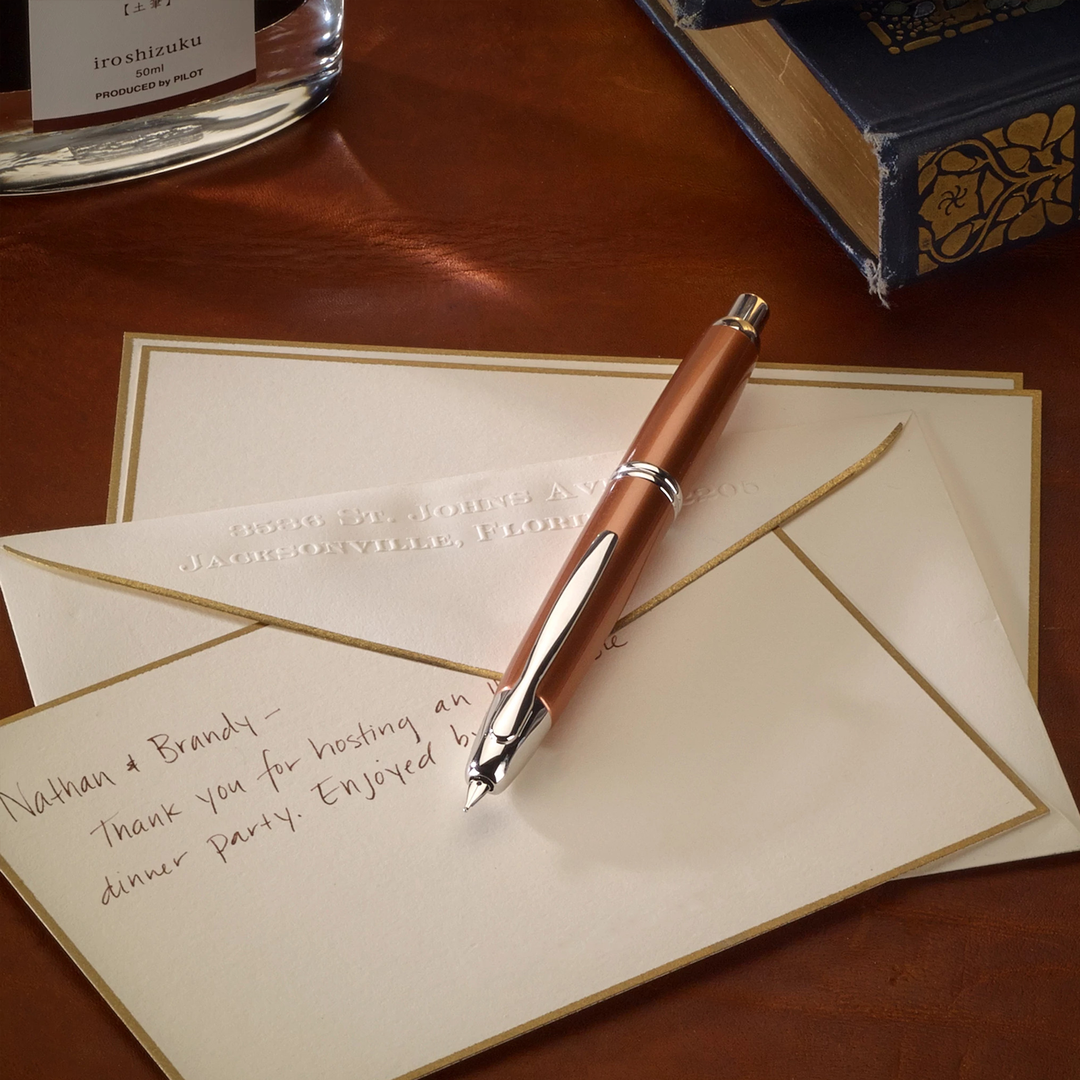 【土筆】
iroshizuku
50ml
PRODUCED by PILOT
3536 St. Johns Av
Jacksonville, Flori
Nathan & Brandy-
Thank you for hosting an
dinner party. Enjoyed by